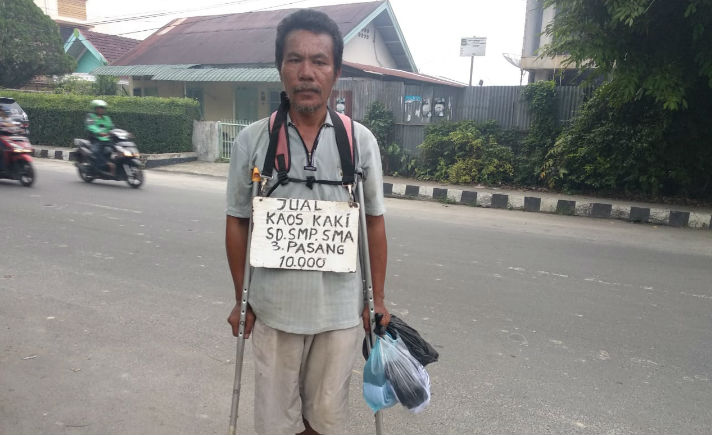 JUAL
KAOS KAKI
SD.SMP.SMA
3.PASANG
10.000